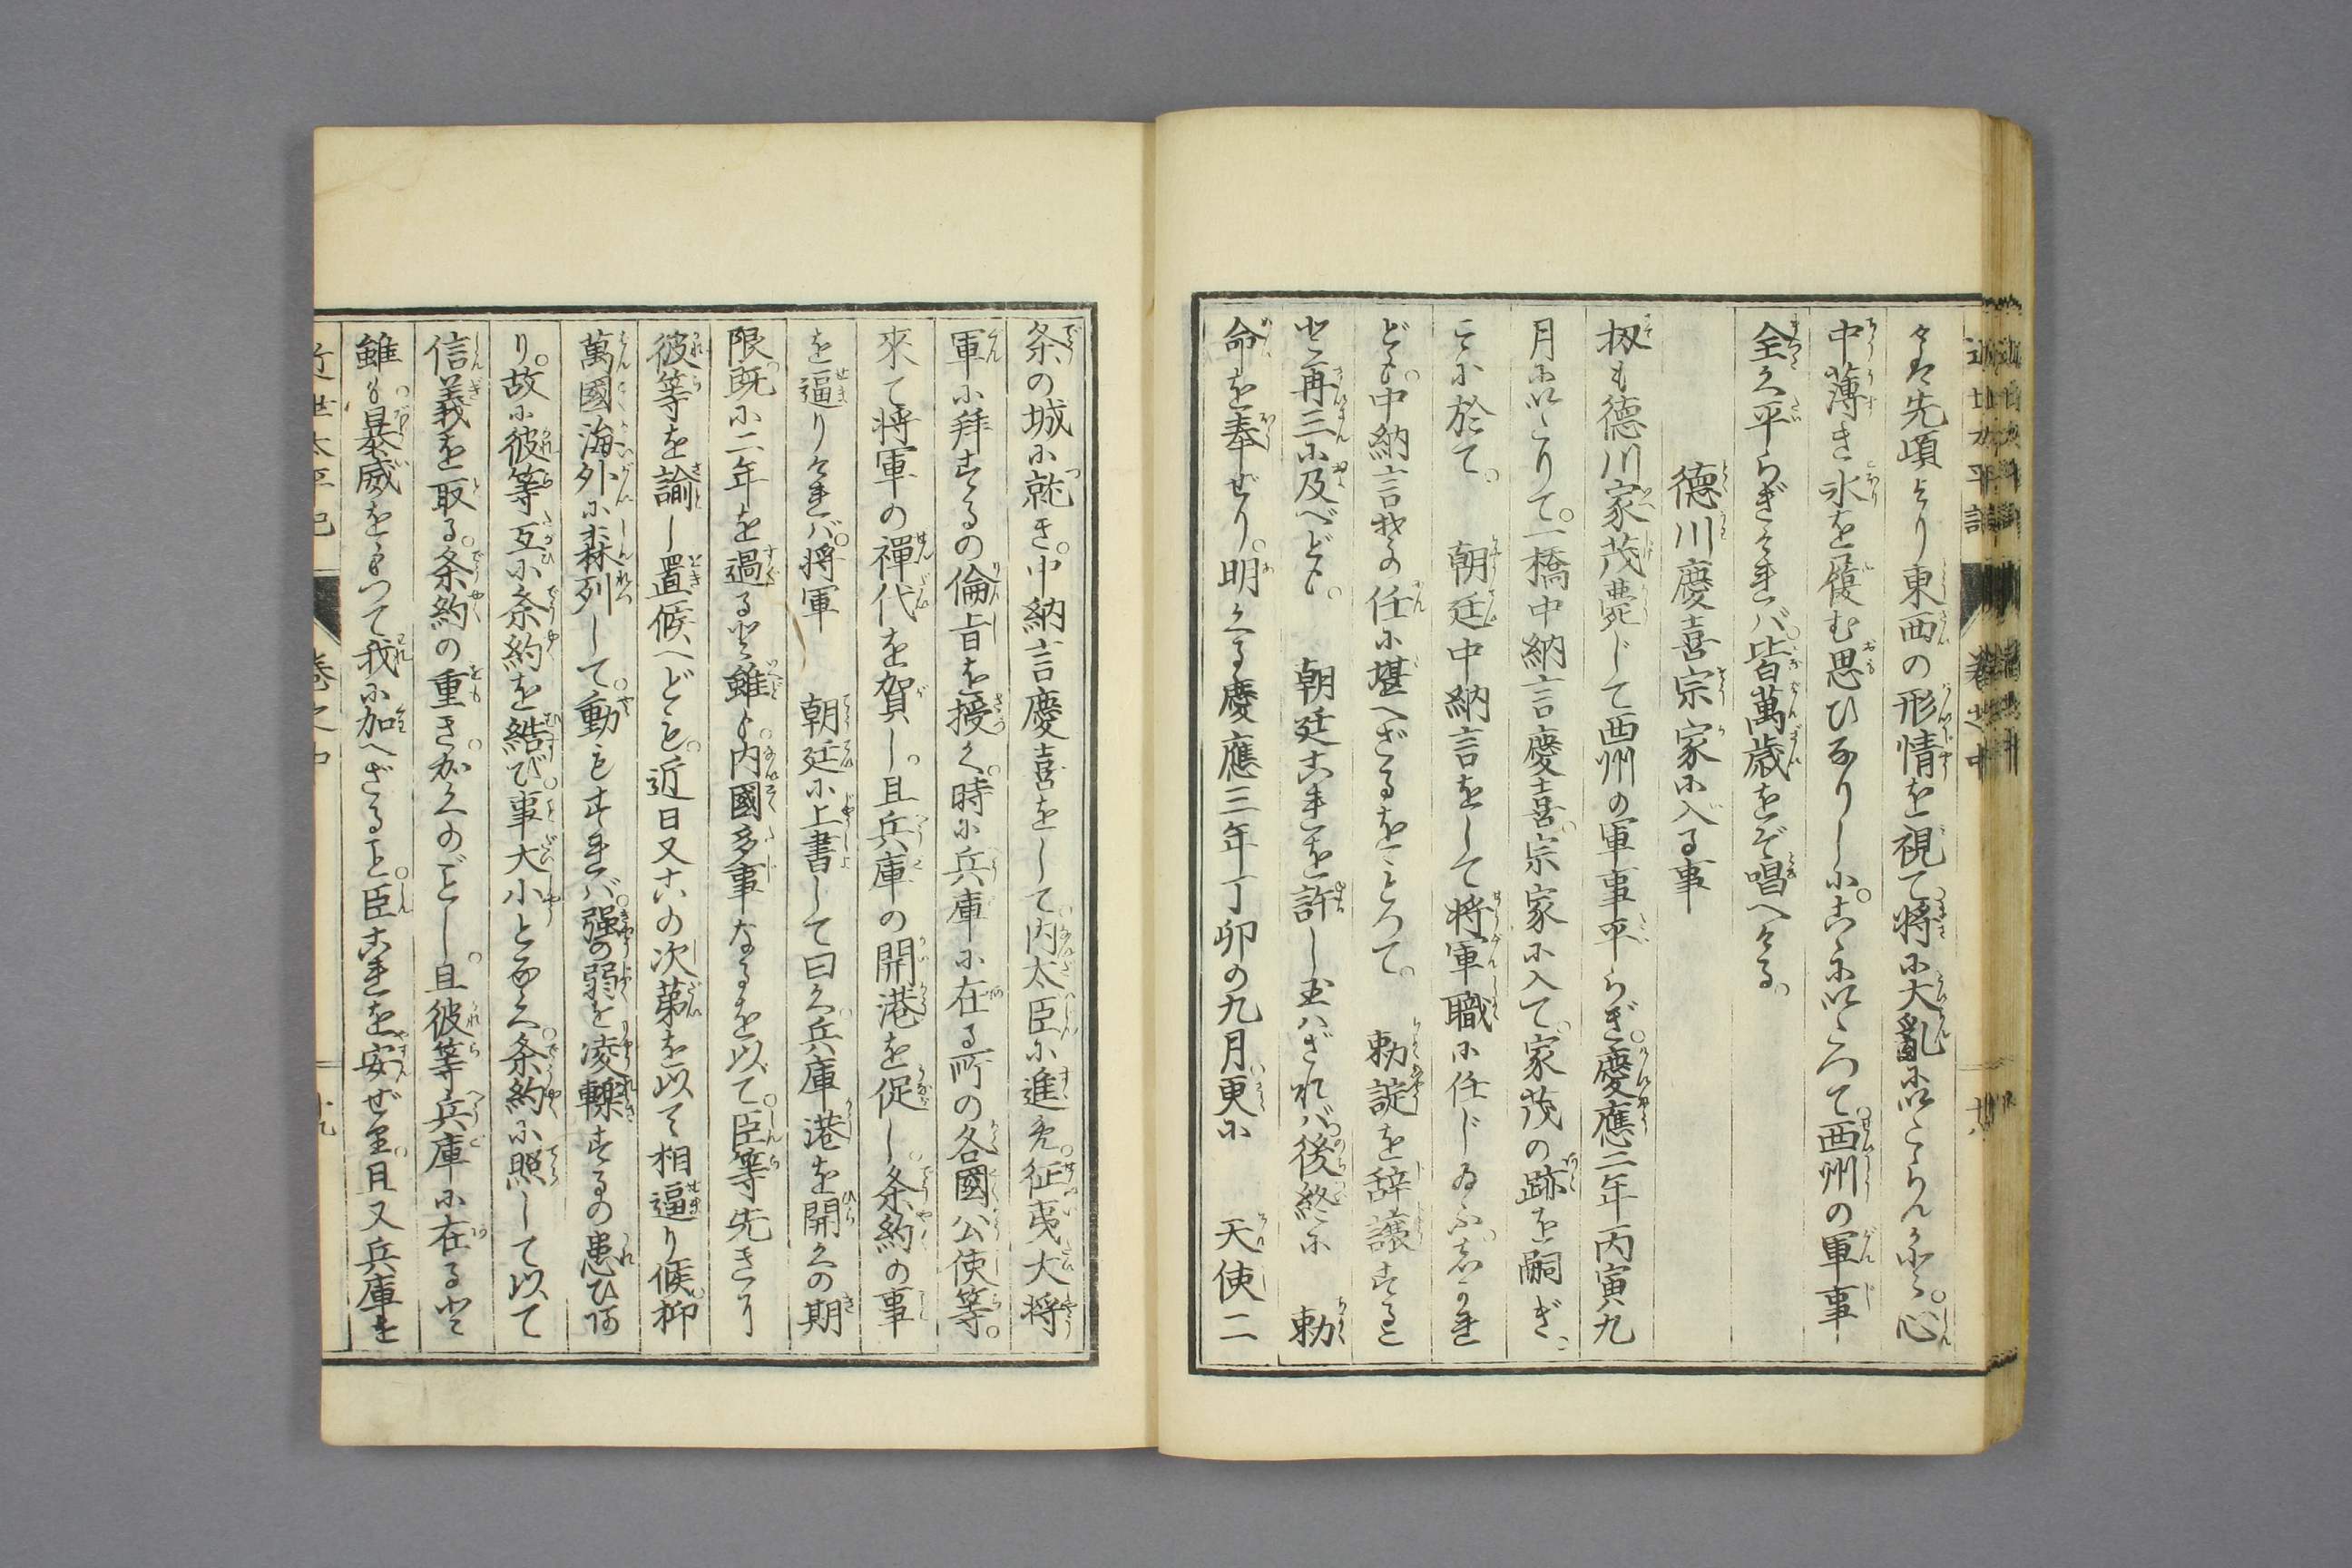 々は先頃より東西の形情を視て。将に大亂に以たらんかと。心
中薄き氷を履む思ひなりしに。玆に以たつて。西州の軍事
全く平らぎければ。皆萬歳をぞ唱へける。
徳川慶喜宗家に入る事
扨も徳川家茂薨じて西州の軍事平らぎ。慶應二年丙寅九
月に以たりて。一橋中納言慶喜。宗家に入て。家茂の跡を嗣ぎ。
こゝに於て。朝廷中納言をして将軍職に任じ給ふ。志かれ
ども。中納言其の任に堪へざるをもつて。勅諚を辞讓すること
と再三に及べども。朝廷これを許し玉はざれば。後終に勅
命を奉ぜり。明くる慶應三年丁卯の九月更に天使二
条の城に就き。中納言慶喜をして。内大臣に進め。征夷大将
軍に拜するの倫旨を授く。時に兵庫に在る所の各國公使等。
來て将軍の禪代を賀し。且兵庫の開港を促し。条約の事
を逼りければ。将軍朝廷に上書して曰く。兵庫港を開くの期
限既に二年を過ると雖も。内國多事なるを以て。臣等先きに
彼等を諭し置候へども。近日又其の次第を以て相逼り候抑
萬國海外に森列して。動もすれば。强の弱を凌轢するの患ひあ
り。故に彼等互に条約を結び。事大小となく。条約に照して以て
信義を取る。条約の重き。かくのごとし。且彼等兵庫に在ると
雖も。暴威をもつて我に加へざること。臣これを安ぜり。且又兵庫を
近世太平記 巻之中 十九